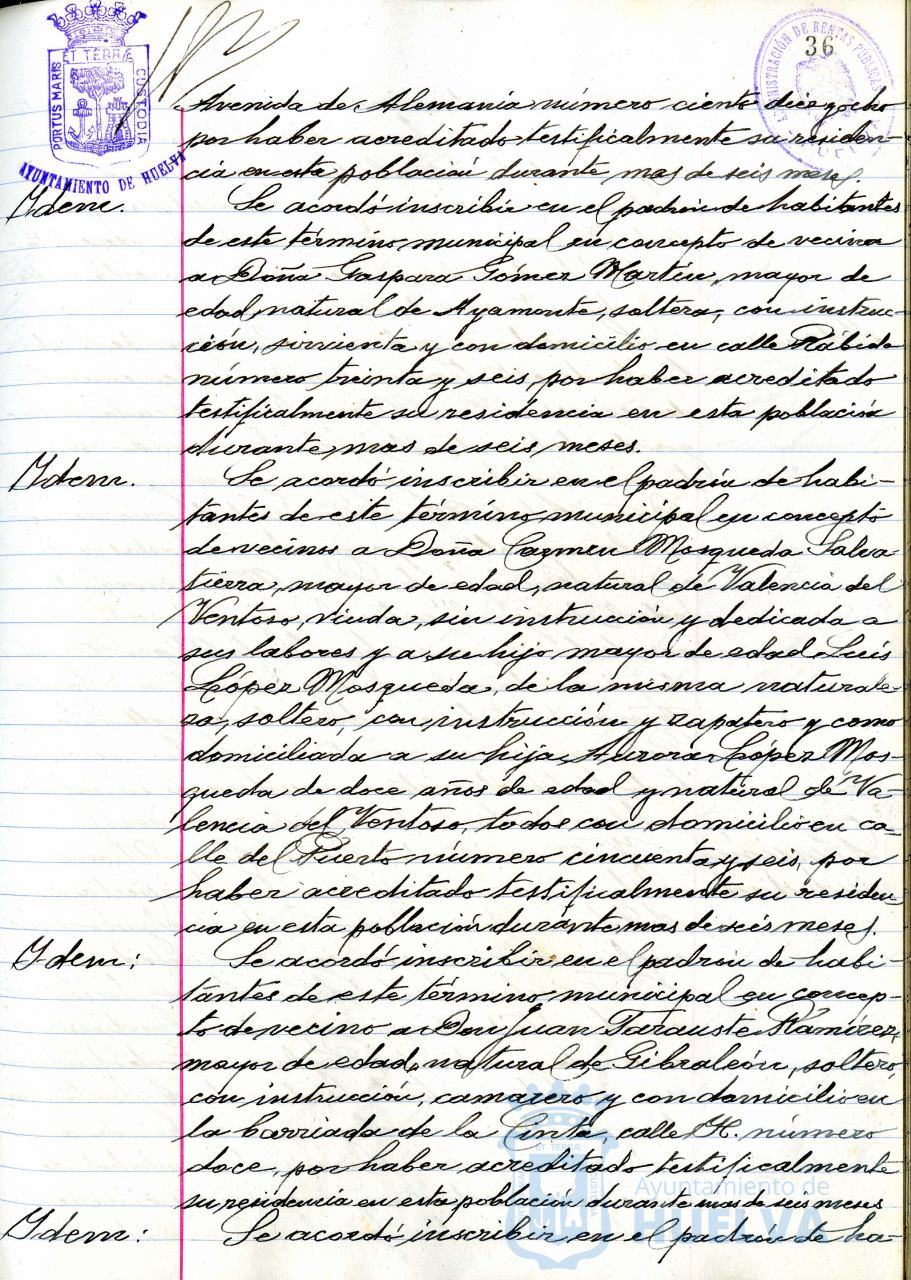 36
PORTUS MARIS ET TERRÆ CUSTODIA
AYUNTAMIENTO DE HUELVA
ADMINISTRACIÓN DE RENTAS PÚBLICAS
Avenida de Alemania número ciento diez y ocho
por haber acreditado testificalmente su residen-
cia en esta población durante mas de seis meses.
Idem. Se acordó inscribir en el padrón de habitantes
de este término municipal en concepto de vecina
a Doña Gaspara Gómez Martín, mayor de
edad natural de Ayamonte, soltera, con instruc-
ción, sirvienta y con domicilio en calle Rábida
número treinta y seis, por haber acreditado
testificalmente su residencia en esta población
durante mas de seis meses.
Idem. Se acordó inscribir en el padrón de habi-
tantes de este término municipal en concepto
de vecinos a Doña Carmen Mosqueda Salva
tierra, mayor de edad, natural de Valencia del
Ventoso, viuda, sin instrucción y dedicada a
sus labores y a su hijo mayor de edad Luís
López Mosqueda, de la misma naturale-
za, soltero, con instrucción y zapatero y como
domiciliada a su hija Aurora López Mos-
queda de doce años de edad y natural de Va-
lencia del Ventoso, todos con domicilio en ca-
lle del Puerto número cincuenta y seis, por
haber acreditado testificalmente su residen-
cia en esta población durante mas de seis meses.
Idem: Se acordó inscribir en el padrón de habi-
tantes de este término municipal en concep-
to de vecino a Don Juan Ramírez,
mayor de edad, natural de Gibraleón, soltero,
con instrucción, camarero y con domicilio en
la barriada de la Cinta, calle H. número
doce, por haber acreditado testificalmente
su residencia en esta población durante mas de seis meses
Idem: Se acordó inscribir en el padrón de ha-
Ayuntamiento de
HUELVA